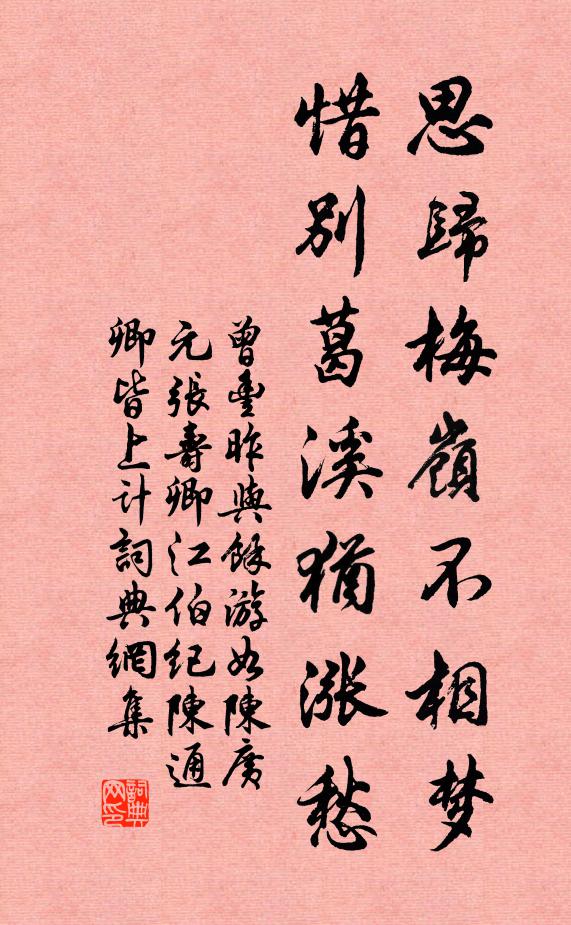 思歸梅嶺不相梦
惜别葛溪猶漲愁
曾豐昨與餘游如陳廣
元張壽卿江伯紀陳通
卿皆上计詞典網集
詞典网印